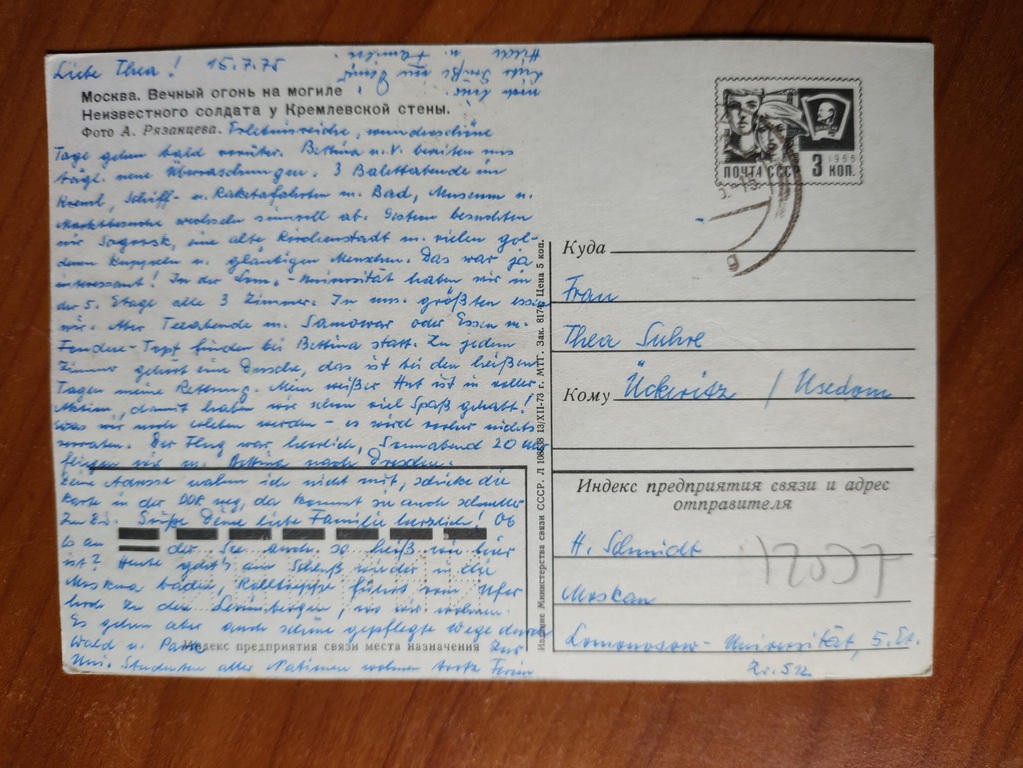 Liebe Thea! 15.7.75
Москва. Вечный огонь на могиле
Неизвестного солдата у Кремлевской стены.
Фото А. Рязанцева. Erlebnisreiche, wunderschöne
Tage gehen bald vorüber. Bettina u. V. bereiten uns
tägl. neue Überraschungen. 3 Balettabende im
Kreml, Schiff- u. Raketafahrten m. Bad, Museum u.
Marktbesuche wechseln sinnvoll ab. Gestern besuchten
wir Sagorsk, eine alte Kirchenstadt m. vielen gol-
denen Kuppeln u. gläubigen Menschen. Das war ja
interessant! In der Lom.-Universität haben wir in
der 5. Etage alle 3 Zimmer. In uns. größten essen
wir. Aber Teeabende m. Samowar oder Essen m.
Fondue-Topf finden bei Bettina statt. Zu jedem
Zimmer gehört eine Dusche, das ist bei den heißen
Tagen meine Rettung. Mein weißer Hut ist in voller
Aktion, damit haben wir schon viel Spaß gehabt!
Was wir noch erleben werden - es wird vorher nichts
verraten. Der Flug war herrlich, Sonnabend 20 Uhr
fliegen wir m. Bettina nach Dresden.
Deine Adresse nahm ich nicht mit, schicke die
Karte in der DDR weg, da kommt sie auch schneller
zu Euch. Grüße Deine liebe Familie herzlich! Ob
es an der See auch so heiß wie hier
ist? Heute geht's am Schluß wieder in die
Moskwa baden, Rolltreppe führt vom Ufer
hoch zu den Leninbergen, wo wir wohnen.
Es gehen aber auch schöne gepflegte Wege durch
Wald u. Park zur
Индекс предприятия связи места назначения
Uni. Studenten aller Nationen wohnen trotz Ferien
Hilde u. Familie
Liebe Grüße von
Издание Министерства связи СССР. Л 108538 13/XII-73 г. МТГ. Зак. 8174. Цена 5 коп.
ПОЧТА СССР 3 КОП.
1966
Куда
Frau
Thea Suhre
Кому Ückeritz / Usedom
Индекс предприятия связи и адрес
отправителя
H. Schmidt
Moskau
Lomonossow-Universität, 5. Et.
Zi. 512